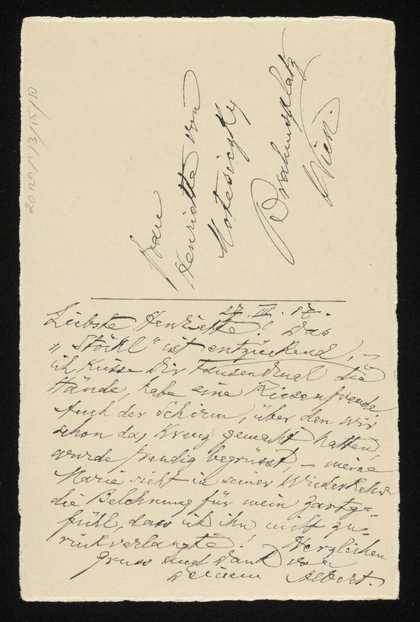 Frau
Henriette von
Motesiczky
Brahmsplatz
Wien.
27. IV. 17.
Liebste Henriette! Das
„Stöckl" ist entzückend, –
ich küsse Dir tausendmal die
Hände, habe eine Riesenfreude
Auch der Schirm, über den wir
schon das Kreuz gemacht hatten,
wurde freudig begrüsst, – meine
Marie sieht in seiner Wiederkehr
die Belohnung für mein Zartge-
fühl, dass ich ihn nicht zu-
rückverlangte! Herzlichen
Gruss und Dank von
Deinem Albert.